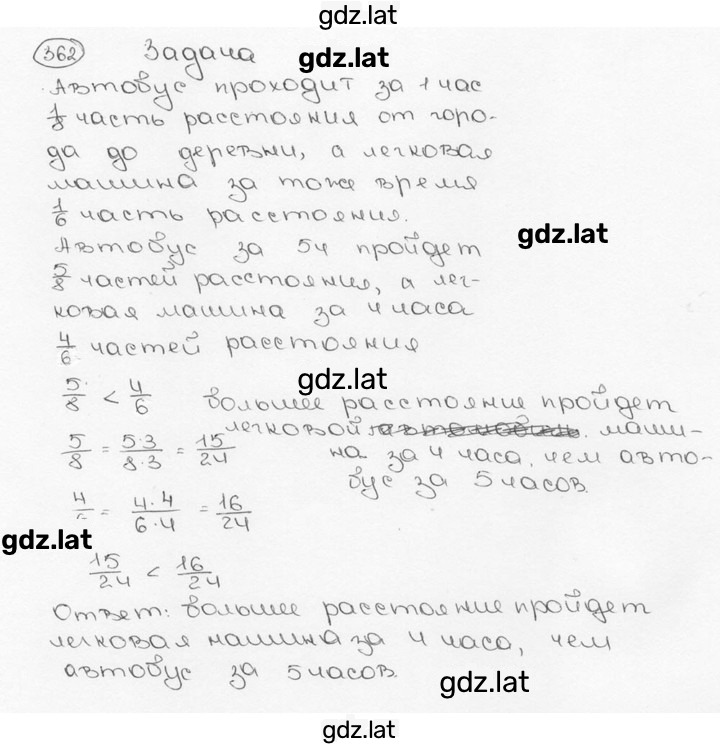 gdz.lat
362 Задача gdz.lat
Автобус проходит за 1 час
1/8 часть расстояния от горо-
да до деревни, а легковая
машина за тоже время
1/6 часть расстояния.
gdz.lat
Автобус за 5ч пройдет
5/8 частей расстояния, а лег-
ковая машина за 4 часа
4/6 частей расстояния
gdz.lat
5/8 < 4/6 большее расстояние пройдет
легковой маши-
5/8 = 5·3/8·3 = 15/24 на за 4 часа, чем авто-
бус за 5 часов.
4/ = 4·4/6·4 = 16/24
gdz.lat
15/24 < 16/24
Ответ: большее расстояние пройдет
легковая машина за 4 часа, чем
автобус за 5 часов.
gdz.lat
gdz.lat